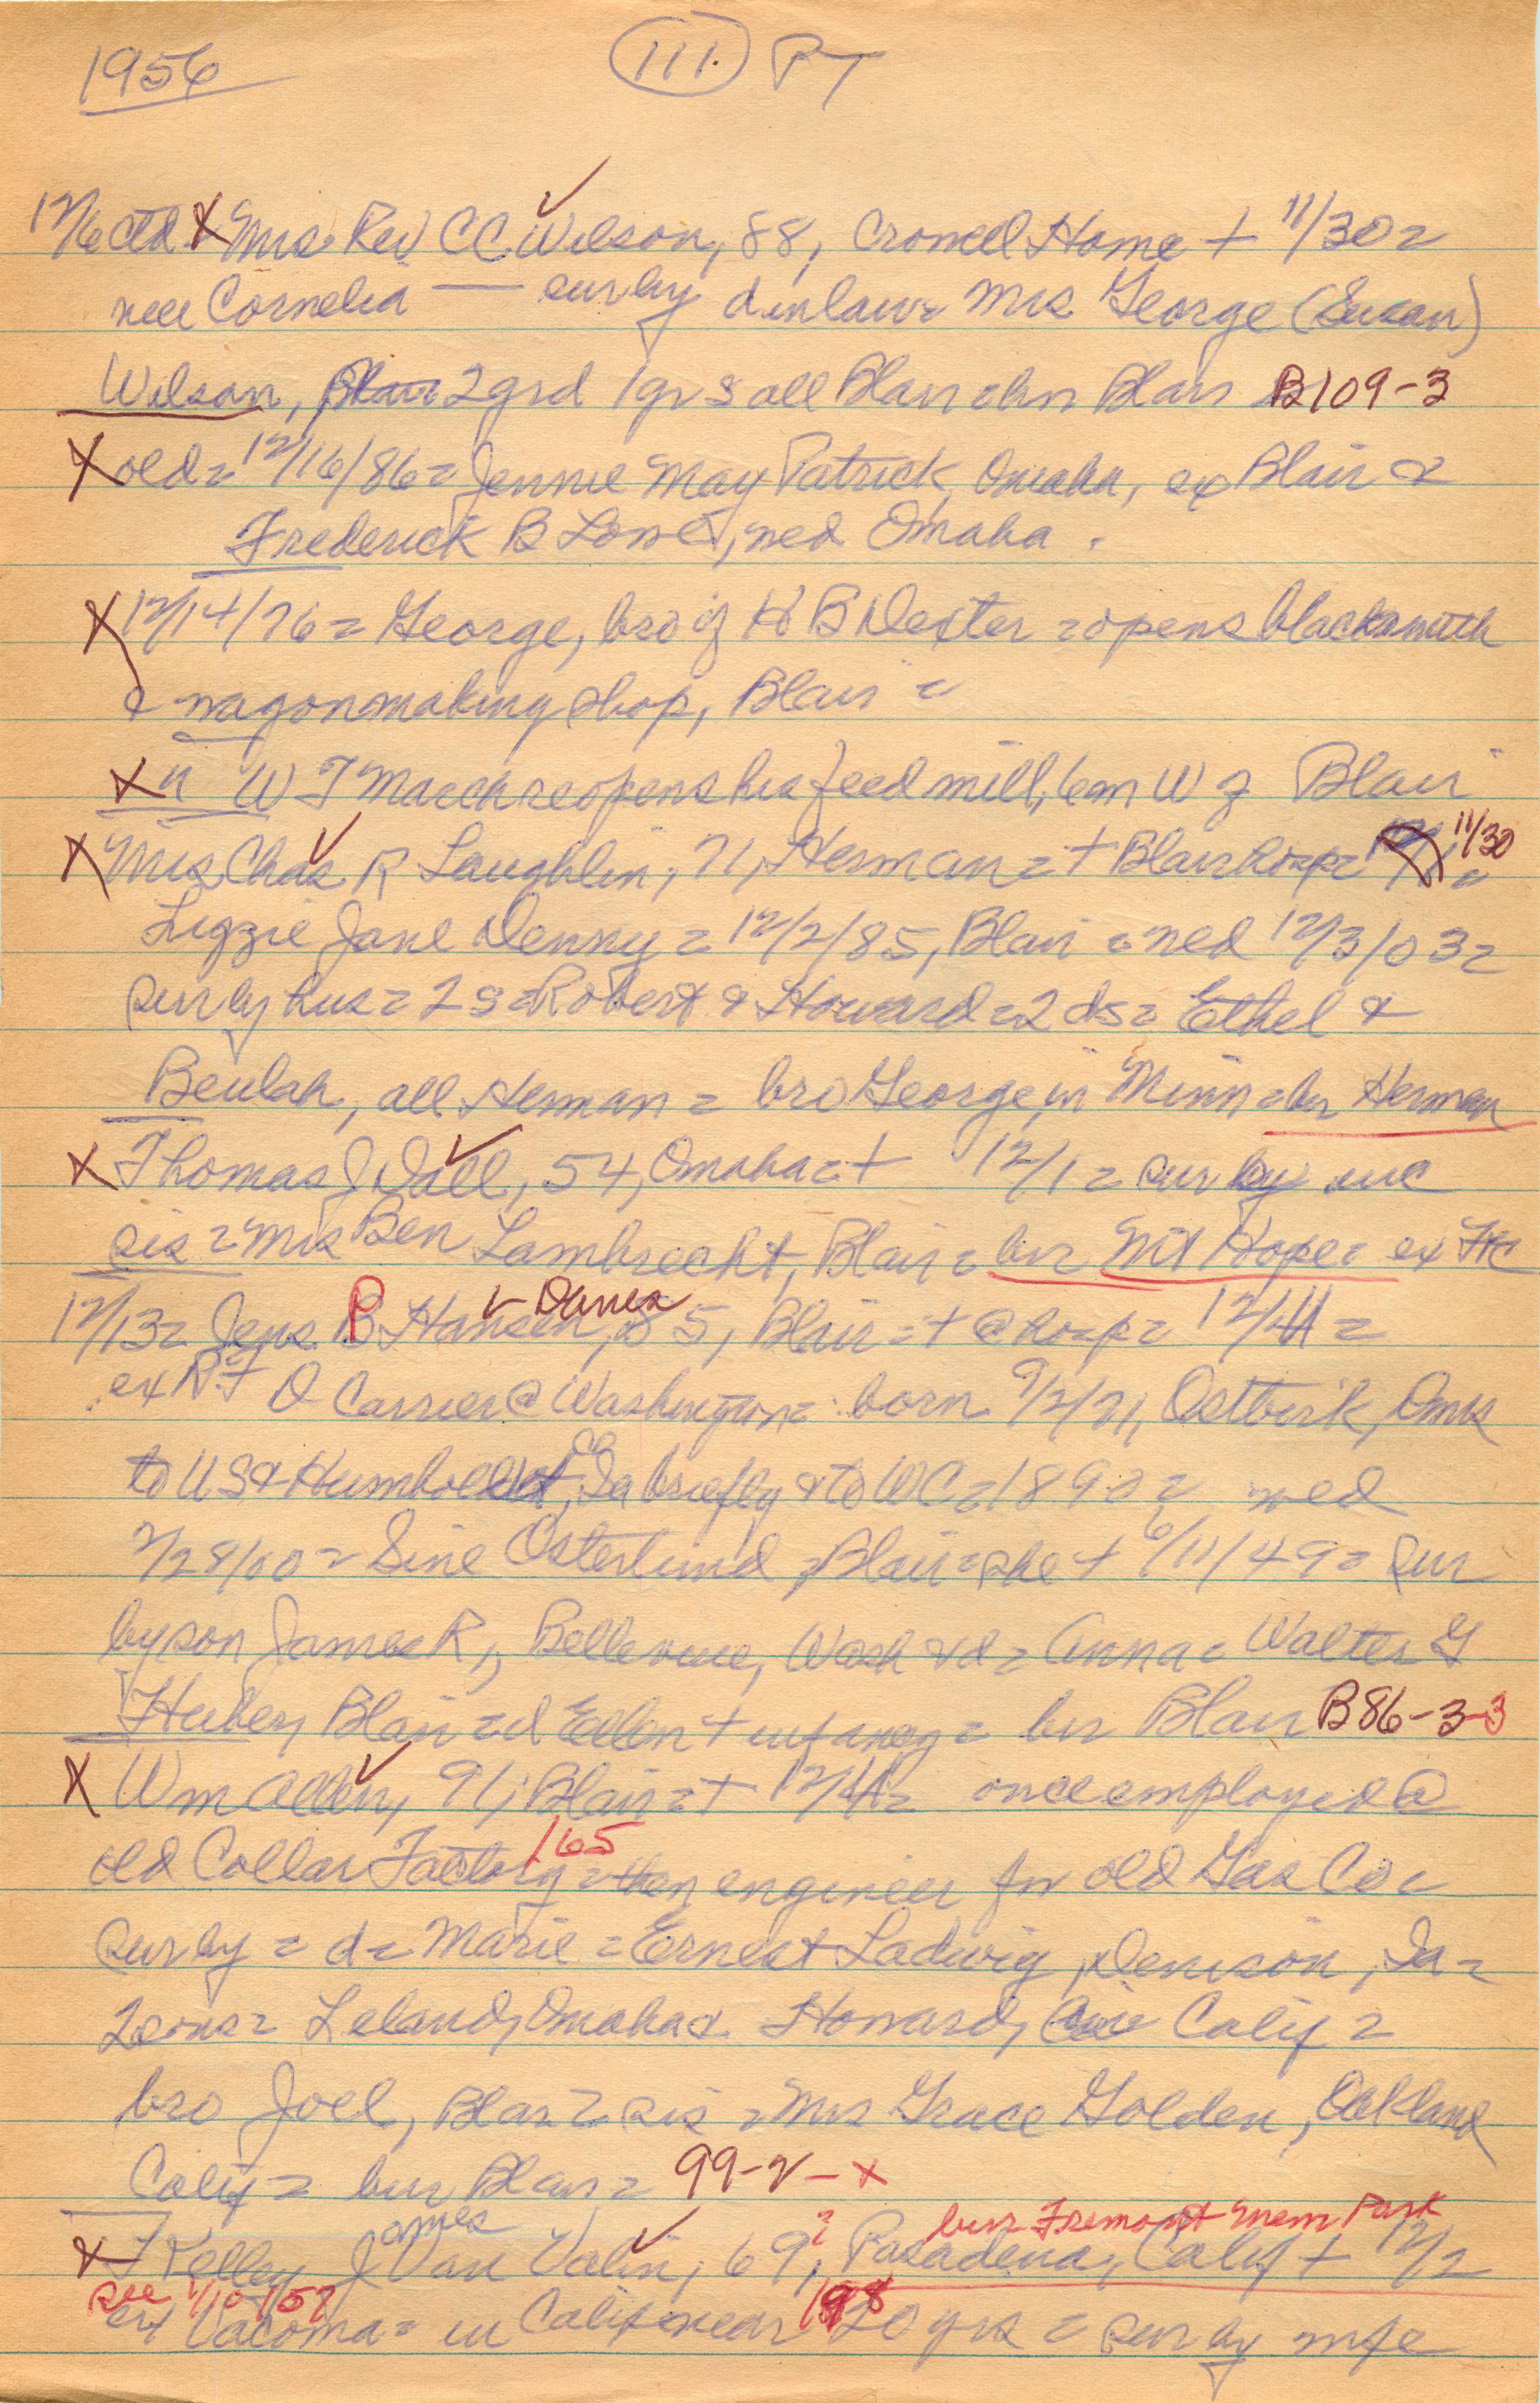 1956 (111.) PT
12/6 ctd X Mrs. Rev CC Wilson, 88, Crowell Home + 11/30 =
nee Cornelia — sur by d in law = Mrs George (Susan)
Wilson, 2 grd 1 gr s all Blair = bur Blair B109-3
X old = 12/16/86 = Jennie May Patrick, Omaha, ex Blair &
Frederick B Lowe, wed Omaha.
X 12/14/76 = George, bro of H B Dexter = opens blacksmith
& wagonmaking shop, Blair =
X " W T March reopens his feed mill, 6 m W of Blair
X Mrs Chas R Laughlin, 71, Herman = + Blair hosp = 11/30
Lizzie Jane Denny = 12/2/85, Blair = wed 12/3/03 =
sur by hus = 2 s = Robert & Howard = 2 ds = Ethel &
Beulah, all Herman = bro George, in Minn = bur Herman
X Thomas J Wall, 54, Omaha = + 12/1 = sur by
sis = Mrs Ben Lambrecht, Blair = bur Mt Hope = ex
12/13 = Jens P Hansen, 85, Blair = + @ hosp = 12/4 =
ex R F D Carrier @ Washington = born 9/2/71, Ostbirk, Dmk
to US & Humboldt, Ia briefly & to WC = 1890 = wed
2/28/00 = Sine Osterlund, Blair = she + 6/11/49 = sur
by son James R, Bellevue, Wash & d = Anna = Walter G
Huber, Blair = d Ellen + infancy = bur Blair B86-3-3
X Wm Allen, 91, Blair = + 12/4 = once employed @
old Collar Factory 165 = then engineer for old Gas Co =
sur by = d = Marie = Ernest Ladwig, Denison, Ia =
2 sons = Leland, Omaha & Howard, Calif =
bro Joel, Blair = sis = Mrs Grace Golden, Oakland
Calif = bur Blair = 99-2-X
bur Fremont Mem Park
X Kelley James Van Valin, 69?, Pasadena, Calif + 12/2
see 1/10/57
ex Tacoma = in Calif near 20 yrs = sur by wife